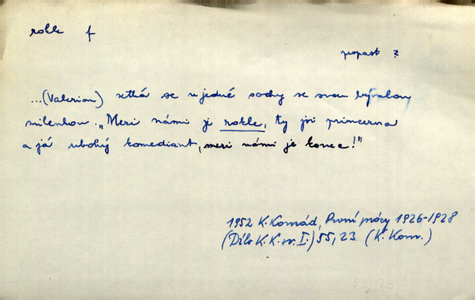 rokle f
propast ?
...(Valerian) setká se u jedné sochy se svou bývalou
milenkou. „Mezi námi je rokle, ty jsi princezna
a já ubohý komediant, mezi námi je konec!"
1952 K. Konrád, První prózy 1926-1928
(Dílo K. K. sv. I.) 55, 23 (K. Kon.)